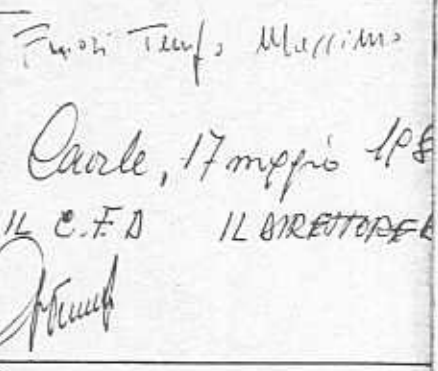 Fuori Tempo Massimo
Caorle, 17 maggio 198
IL C.F.D IL DIRETTORE